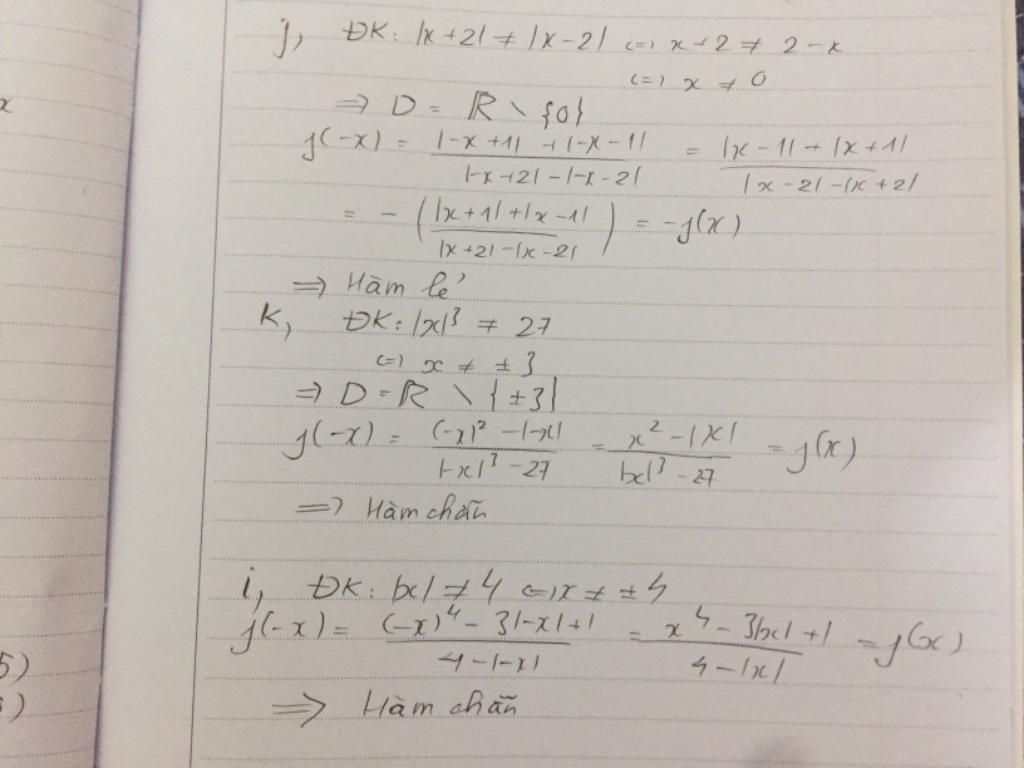 j, ĐK: |x+2| ≠ |x-2| <=> x+2 ≠ 2-x
<=> x ≠ 0
=> D = ℝ \ {0}
f(-x) = (|-x+1| + |-x-1|)/(|-x+2| - |-x-2|) = (|x-1| + |x+1|)/(|x-2| - |x+2|)
= - ((|x+1| + |x-1|)/(|x+2| - |x-2|)) = -f(x)
=> Hàm lẻ
K, ĐK: |x|³ ≠ 27
<=> x ≠ ±3
=> D = ℝ \ {±3}
f(-x) = ((-x)² - |-x|)/(|-x|³ - 27) = (x² - |x|)/(|x|³ - 27) = f(x)
=> Hàm chẵn
i, ĐK: |x| ≠ 4 <=> x ≠ ±4
f(-x) = ((-x)⁴ - 3|-x| + 1)/(4 - |-x|) = (x⁴ - 3|x| + 1)/(4 - |x|) = f(x)
=> Hàm chẵn
x
5)
)